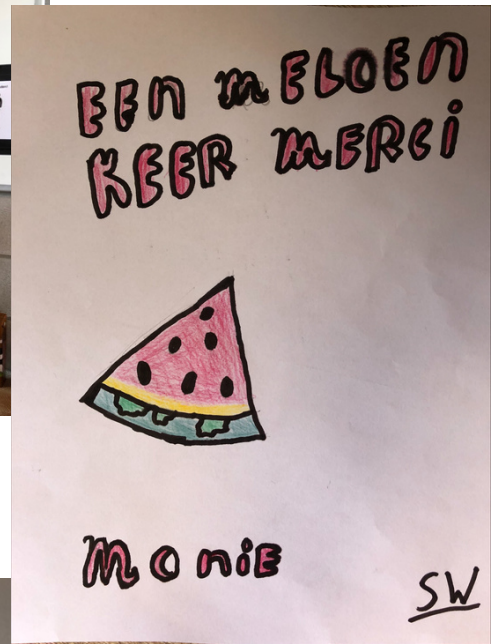 EEN mELOEN
KEER MERCi
MONiE
SW